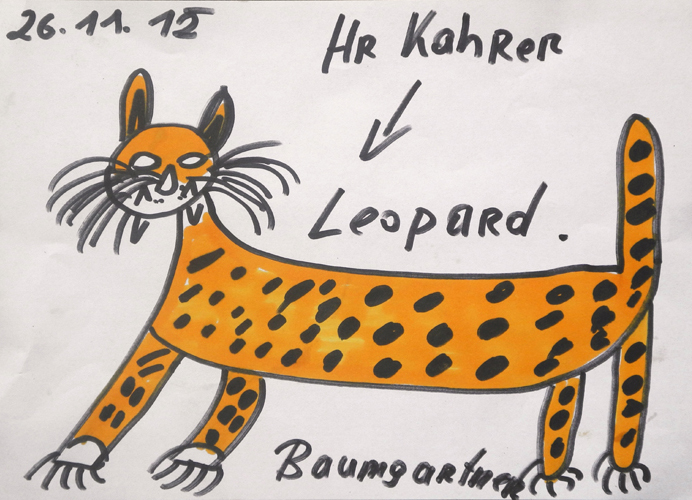 26. 11. 12
Hr Kahrer
Leopard.
Baumgartner